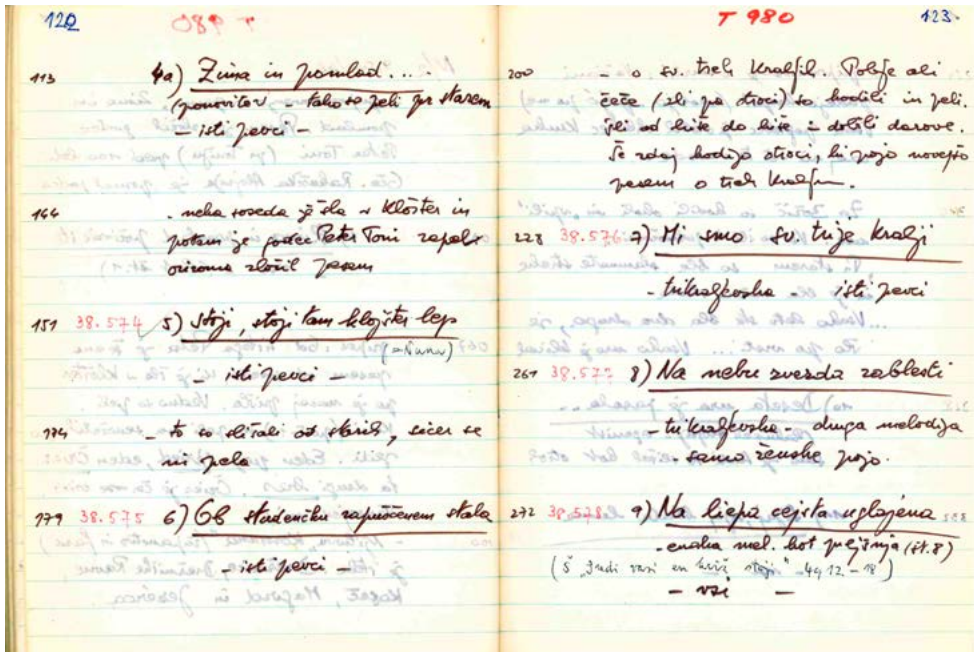 120
113 4a) Zima in pomlad....
(ponovitev - tako se peli pr starem
- isti pevci -
144 . neka soseda je šla v Klošter in
potem je godec Peter Toni zapel
oziroma zložil pesem
151 38.574 5) Stoji, stoji tam klošter lep
(a Nuna)
- isti pevci -
174 - to so slišali od starih, sicer se
ni pela
179 38.575 6) Ob studenčku zapuščenem stala
- isti pevci -
T 980 123
200 - o sv. treh Kraljih. Pobje ali
čeče (ali pa otroci) so hodili in peli.
Šli od hiše do hiše in dobili darove.
Še zdaj hodijo otroci, ki pojo novejšo
pesem o treh kraljih.
228 38.576 7) Mi smo sv. trije kralji
- trikraljevska - isti pevci
261 38.577 8) Na nebu zvezda zablesti
- trikraljevska - druga melodija
- samo ženske pojo.
272 38.578 9) Na liepa cejsta uglajena
- enaka mel. kot pejšnja (št. 8)
(Š "Judi vasi en križ stoji" - 49 12-18)
- vsi -